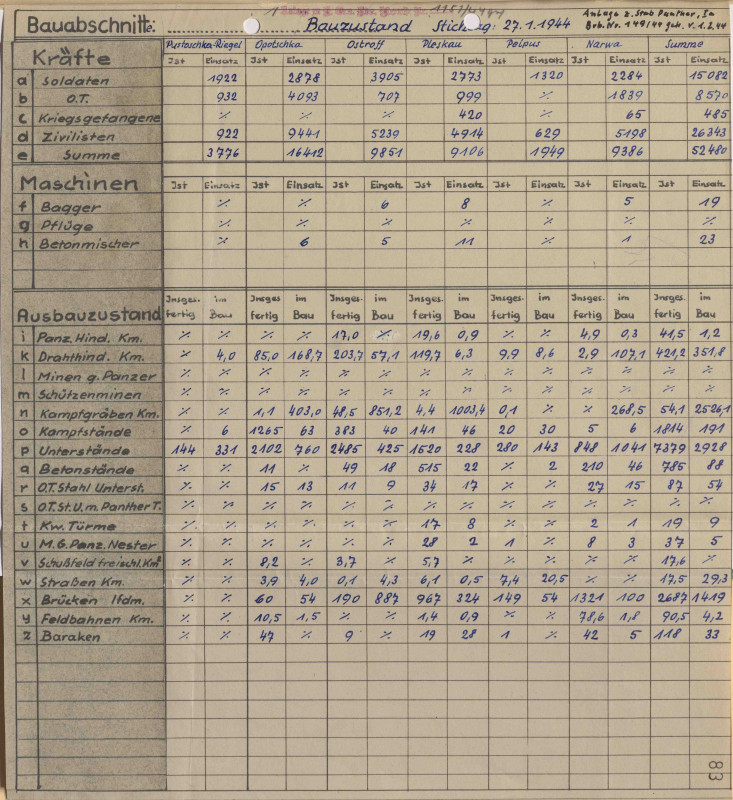 Bauabschnitte: Bauzustand Stichtag: 27.1.1944 Anlage z. Stab Panther, Ia
Brb. Nr. 149/44 geh. v. 1.2.44
Kräfte Pustoschka-Riegel Opotschka Ostroff Pleskau Peipus Narwa Summe
Ist Einsatz Ist Einsatz Ist Einsatz Ist Einsatz Ist Einsatz Ist Einsatz Ist Einsatz
a Soldaten 1922 2878 3905 2773 1320 2284 15082
b O.T. 932 4093 707 999 ٪ 1839 8570
c Kriegsgefangene ٪ ٪ ٪ 420 65 485
d Zivilisten 922 9441 5239 4914 629 5198 26343
e Summe 3776 16412 9851 9106 1949 9386 52480
Maschinen Ist Einsatz Ist Einsatz Ist Einsatz Ist Einsatz Ist Einsatz Ist Einsatz Ist Einsatz
f Bagger ٪ ٪ 6 8 ٪ 5 19
g Pflüge ٪ ٪ ٪ ٪ ٪ ٪ ٪
h Betonmischer ٪ 6 5 11 ٪ 1 23
Ausbauzustand Insges. fertig im Bau Insges fertig im Bau Insges. fertig im Bau Insges. fertig im Bau Insges. fertig im Bau Insges. fertig im Bau Insges. fertig im Bau
i Panz. Hind. Km. ٪ ٪ ٪ ٪ 17,0 ٪ 19,6 0,9 ٪ ٪ 4,9 0,3 41,5 1,2
k Drahthind. Km. ٪ 4,0 85,0 168,7 203,7 57,1 119,7 6,3 9,9 8,6 2,9 107,1 421,2 351,8
l Minen g. Panzer ٪ ٪ ٪ ٪ ٪ ٪ ٪ ٪ ٪ ٪ ٪ ٪ ٪ ٪
m Schützenminen ٪ ٪ ٪ ٪ ٪ ٪ ٪ ٪ ٪ ٪ ٪ ٪ ٪ ٪
n Kampfgräben Km. ٪ ٪ 1,1 403,0 48,5 851,2 4,4 1003,4 0,1 ٪ ٪ 268,5 54,1 2526,1
o Kampfstände ٪ 6 1265 63 383 40 141 46 20 30 5 6 1814 191
p Unterstände 144 331 2102 760 2485 425 1520 228 280 143 848 1041 7379 2928
q Betonstände ٪ ٪ 11 ٪ 49 18 515 22 ٪ 2 210 46 785 88
r O.T. Stahl Unterst. ٪ ٪ 15 13 11 9 34 17 ٪ ٪ 27 15 87 54
s O.T. St. U. m. Panther T. ٪ ٪ ٪ ٪ ٪ ٪ ٪ ٪ ٪ ٪ ٪ ٪ ٪ ٪
t Kw. Türme ٪ ٪ ٪ ٪ ٪ ٪ 17 8 ٪ ٪ 2 1 19 9
u M.G. Panz. Nester ٪ ٪ ٪ ٪ ٪ ٪ 28 2 1 ٪ 8 3 37 5
v Schußfeld freischl. Km² ٪ ٪ 8,2 ٪ 3,7 ٪ 5,7 ٪ ٪ ٪ ٪ ٪ 17,6 ٪
w Straßen Km. ٪ ٪ 3,9 4,0 0,1 4,3 6,1 0,5 7,4 20,5 ٪ ٪ 17,5 29,3
x Brücken lfdm. ٪ ٪ 60 54 190 887 967 324 149 54 1321 100 2687 1419
y Feldbahnen Km. ٪ ٪ 10,5 1,5 ٪ ٪ 1,4 0,9 ٪ ٪ 78,6 1,8 90,5 4,2
z Baraken ٪ ٪ 47 ٪ 9 ٪ 19 28 1 ٪ 42 5 118 33
83